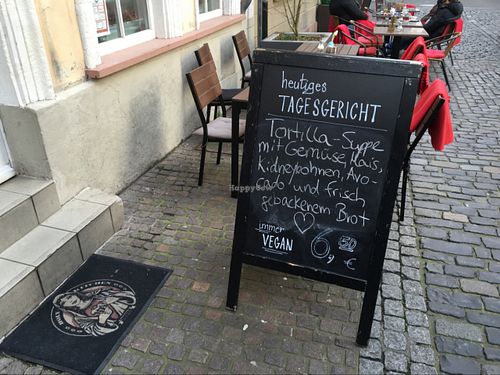 heutiges
TAGESGERICHT
Tortilla-Suppe
mit Gemüse, Mais,
Kidneybohnen, Avo-
do und frisch
gebackenem Brot
immer
VEGAN
6,50
€
HappyCow